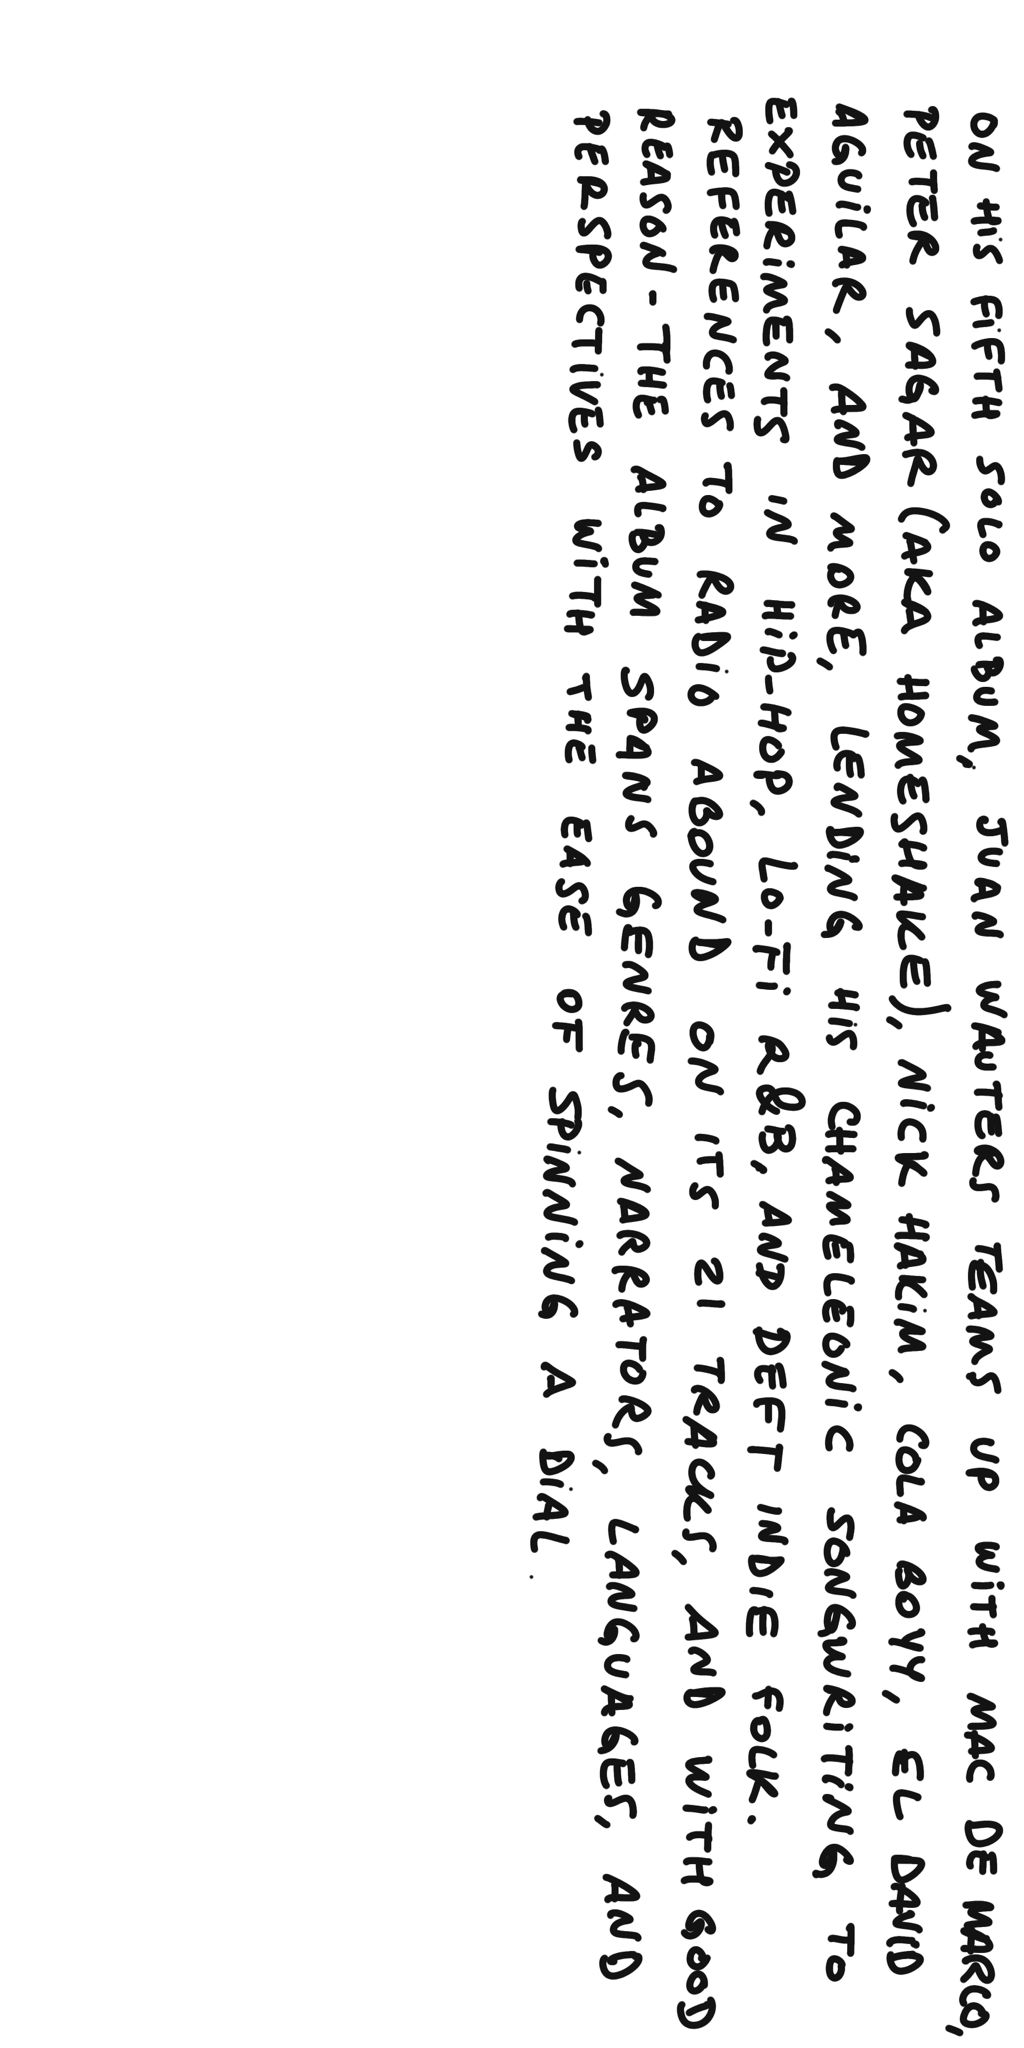 ON HiS FiFTH SOLO ALBUM, JUAN WAUTERS TEAMS UP WiTH MAC DE MARCO,
PETER SAGAR (AKA HOMESHAKE), NiCK HAKiM, COLA BOYY, EL DAVID
AGUiLAR, AND MORE, LENDiNG HiS CHAMELEONiC SONGWRiTiNG TO
EXPERiMENTS IN HiP-HOP, LO-Fi R&B, AND DEFT INDIE FOLK.
REFERENCES TO RADiO ABOUND ON ITS 21 TRACKS, AND WiTH GOOD
REASON - THE ALBUM SPANS GENRES, NARRATORS, LANGUAGES, AND
PERSPECTiVES WiTH THE EASE OF SPiNNiNG A DiAL.